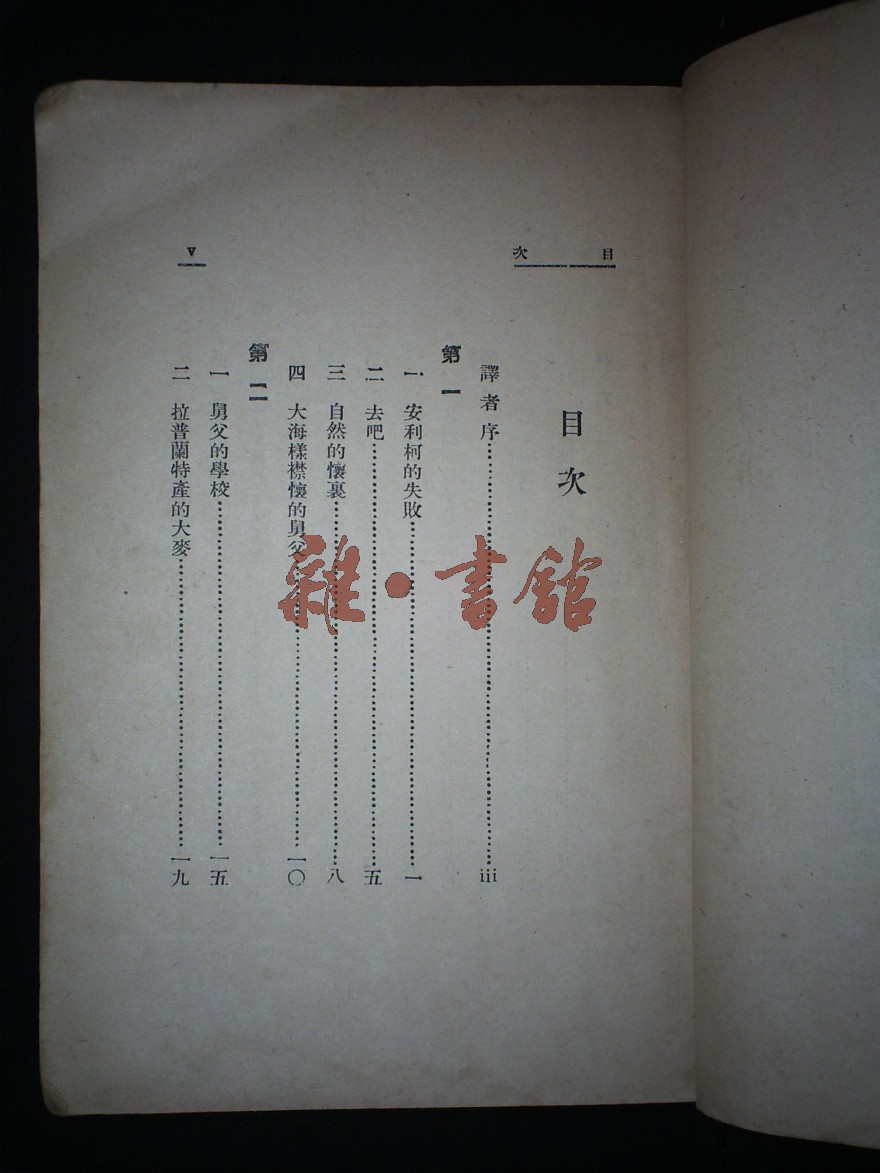 目次
V
目次
譯者序……iii
第一
一 安利柯的失敗……一
二 去吧……五
三 自然的懷裏……八
四 大海樣襟懷的舅父……一〇
第二
一 舅父的學校……一五
二 拉普蘭特產的大麥……一九
雜·書館